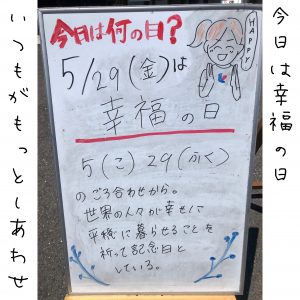 今日は幸福の日
今日は何の日?
HAPPY
5/29(金)は
幸福の日
5(こ)29(ふく)
のごろ合わせから。
世界の人々が幸せに
平穏に暮らせることを
祈って記念日と
している。
いつもがもっとしあわせ